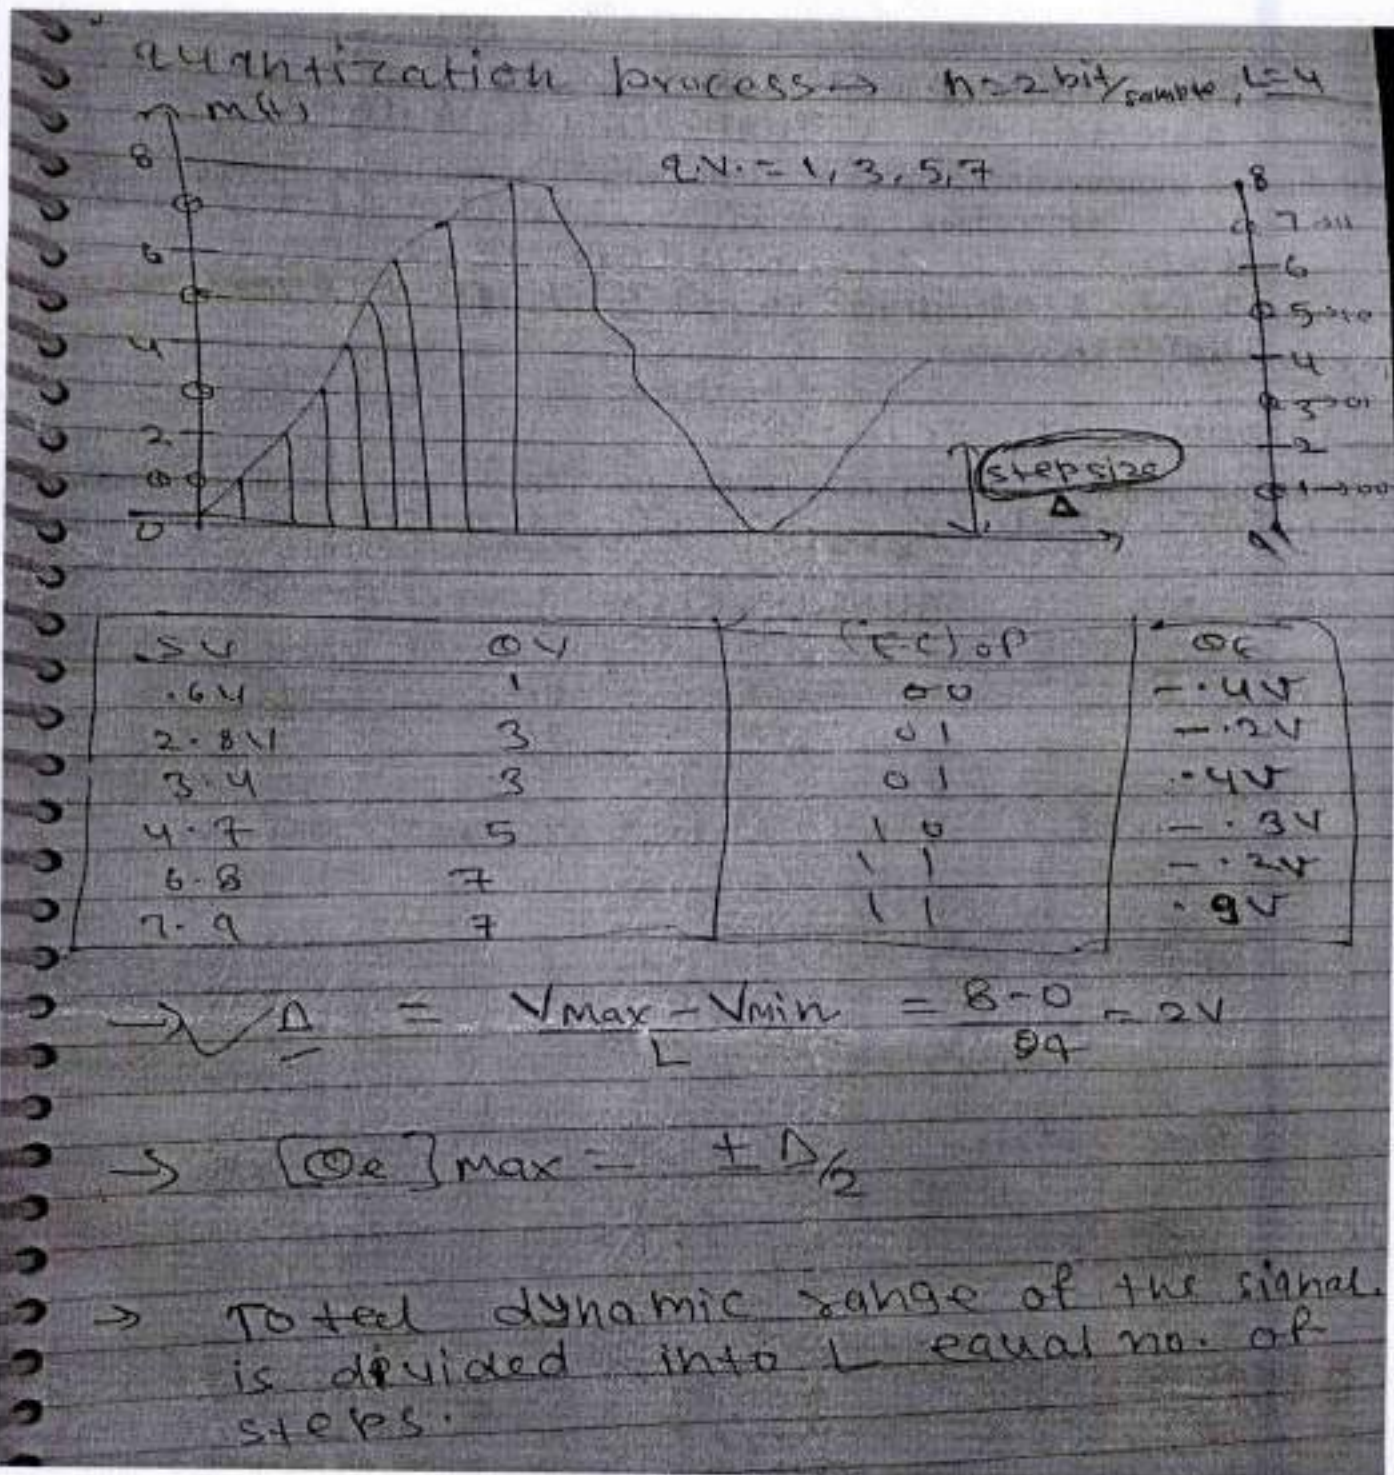 quantization process → n=2 bit/sample, L=4
m(t)
8
q.v. = 1, 3, 5, 7
8
7→11
6
6
5→10
4
4
3→01
2
2
step size
Δ
1→00
0
SV QV (EC) OP Qe
.6V 1 00 -.4V
2.8V 3 01 -.2V
3.4 3 01 .4V
4.7 5 10 -.3V
6.8 7 11 -.2V
7.9 7 11 .9V
→ Δ = Vmax - Vmin / L = 8-0 / 4 = 2V
→ [Qe] max = ± Δ/2
→ Toteel dynamic range of the signal.
is divided into L equal no. of
steps.